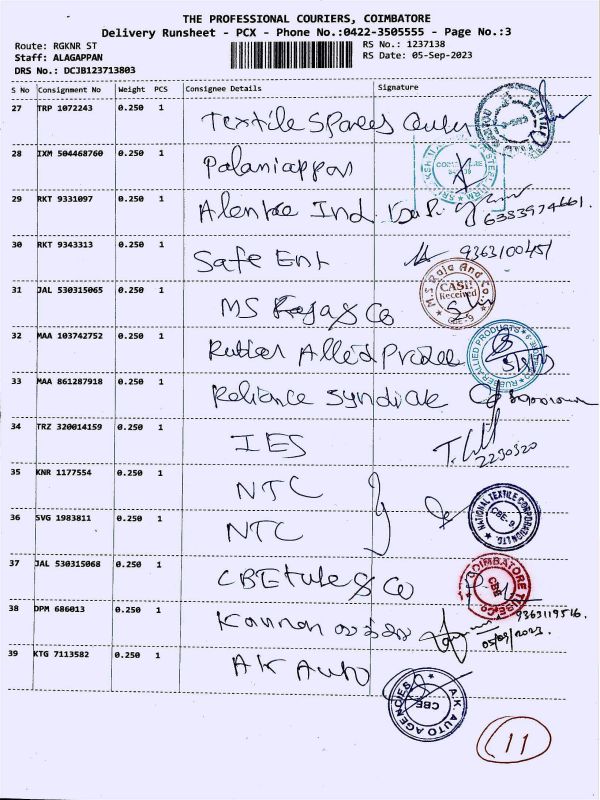 THE PROFESSIONAL COURIERS, COIMBATORE
Delivery Runsheet - PCX - Phone No.:0422-3505555 - Page No.:3
Route: RGKNR ST RS No.: 1237138
Staff: ALAGAPPAN RS Date: 05-Sep-2023
DRS No.: DCJB123713803
S No Consignment No Weight PCS Consignee Details Signature
27 TRP 1072243 0.250 1 Textile Spares
28 IXM 504468760 0.250 1 Palaniappan
29 RKT 9331097 0.250 1 Ind 6383974661.
30 RKT 9343313 0.250 1 Safe Ent 9363100451
31 JAL 530315065 0.250 1 MS Raja & Co M.S Raja And Co. CASH Received CBE-9
32 MAA 103742752 0.250 1 Rubber Allied RUBBER ALLIED PRODUCTS
33 MAA 861287918 0.250 1 Reliance Syndicate
34 TRZ 320014159 0.250 1 IES 2230320
35 KNR 1177554 0.250 1 NTC NATIONAL TEXTILE CORPORATION LTD. CBE-9
36 SVG 1983811 0.250 1 NTC
37 JAL 530315068 0.250 1 CBE tube & Co COIMBATORE TUBE CO. CBE
38 DPM 686013 0.250 1 Kannan 9363119516.
05/09/2023.
39 KTG 7113582 0.250 1 AK Auto A.K. AUTO AGENCIES CBE
11